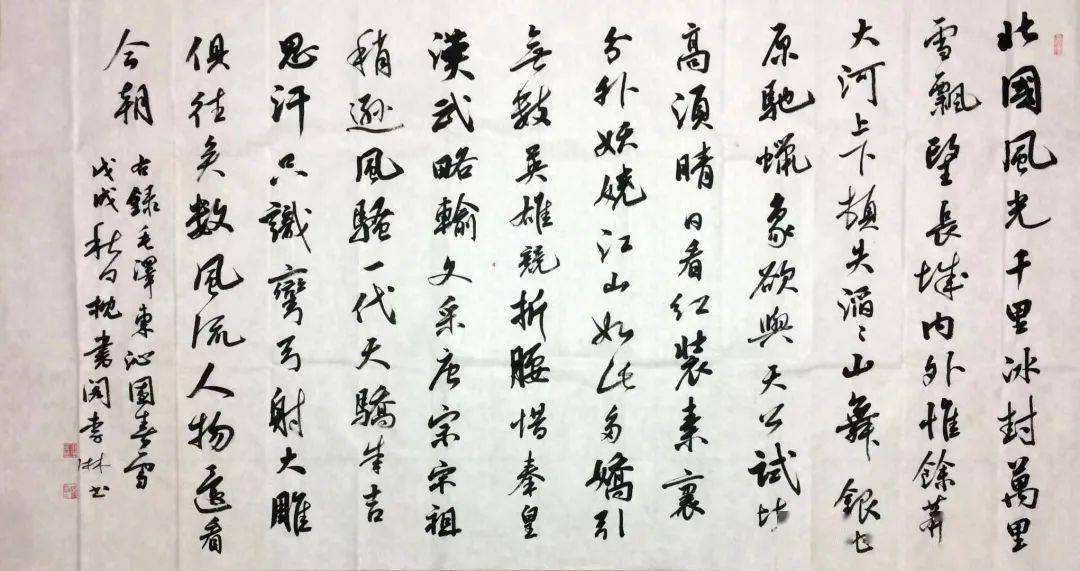 北國風光千里冰封萬里
雪飄望長城内外惟餘莽
大河上下頓失滔〻山舞銀蛇
原馳蠟象欲與天公試比
高須晴日看紅裝素裹
分外妖嬈江山如此多嬌引
無數英雄競折腰惜秦皇
漢武略輸文采唐宗宋祖
稍遜風騷一代天驕成吉
思汗只識彎弓射大雕
俱往矣数風流人物還看
今朝
右錄毛澤東沁園春雪
戊戌秋月枕書閣李淋书